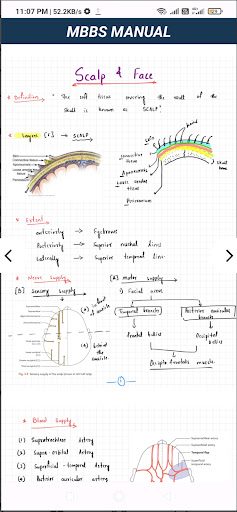 11:07 PM | 52.2KB/s
MBBS MANUAL
Scalp & Face
Definition "The soft tissue covering the vault of the
skull is known as SCALP"
Layers [5] → SCALP
Skin
hair
connective tissue
Aponeurosis
Loose areolar tissue
Pericranium
Skull bone
Extent
anteriorly → Eyebrows
Posteriorly → Superior nuchal lines
Laterally → Superior temporal lines
Nerve Supply
[B] Sensory Supply
[A] motor supply
Facial nerve
(A) in front of auricle
(B) behind the auricle
Temporal branch
Posterior auricular branch
frontal bellies
Occipital bellies
Occipito frontalis muscle
Blood Supply
(1) Supratrochlear Artery
(2) Supra-orbital Artery
(3) Superficial-temporal Artery
(4) Posterior auricular artery
Supratrochlear artery
Supraorbital artery
Temporal flap
Superficial temporal artery